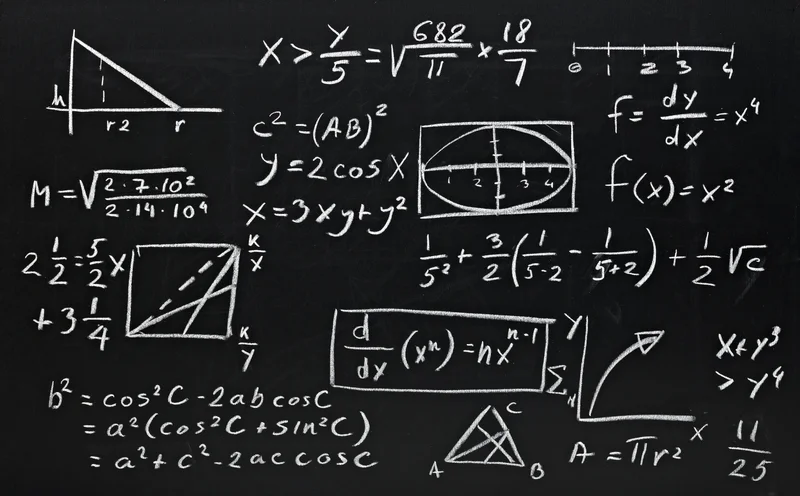 h
r2 r
X > y/5 = √682/π × 18/7
0 1 2 3 4
c² = (AB)²
y = 2 cos X
X = 3xy + y²
1 2 3 4
f = dy/dx = x⁴
f(x) = x²
M = √(2·7·10²)/(2·14·10⁴)
2 1/2 = 5/2 X
+ 3 1/4
K/X
K/Y
1/5² + 3/2 (1/5-2 - 1/5+2) + 1/2 √c
d/dx (xⁿ) = nxⁿ⁻¹
Y
Σ
X
X + y³
> y⁴
11/25
b² = cos²C - 2ab cosC
= a²(cos²C + sin²C)
= a² + c² - 2ac cosC
A B C
A = πr²